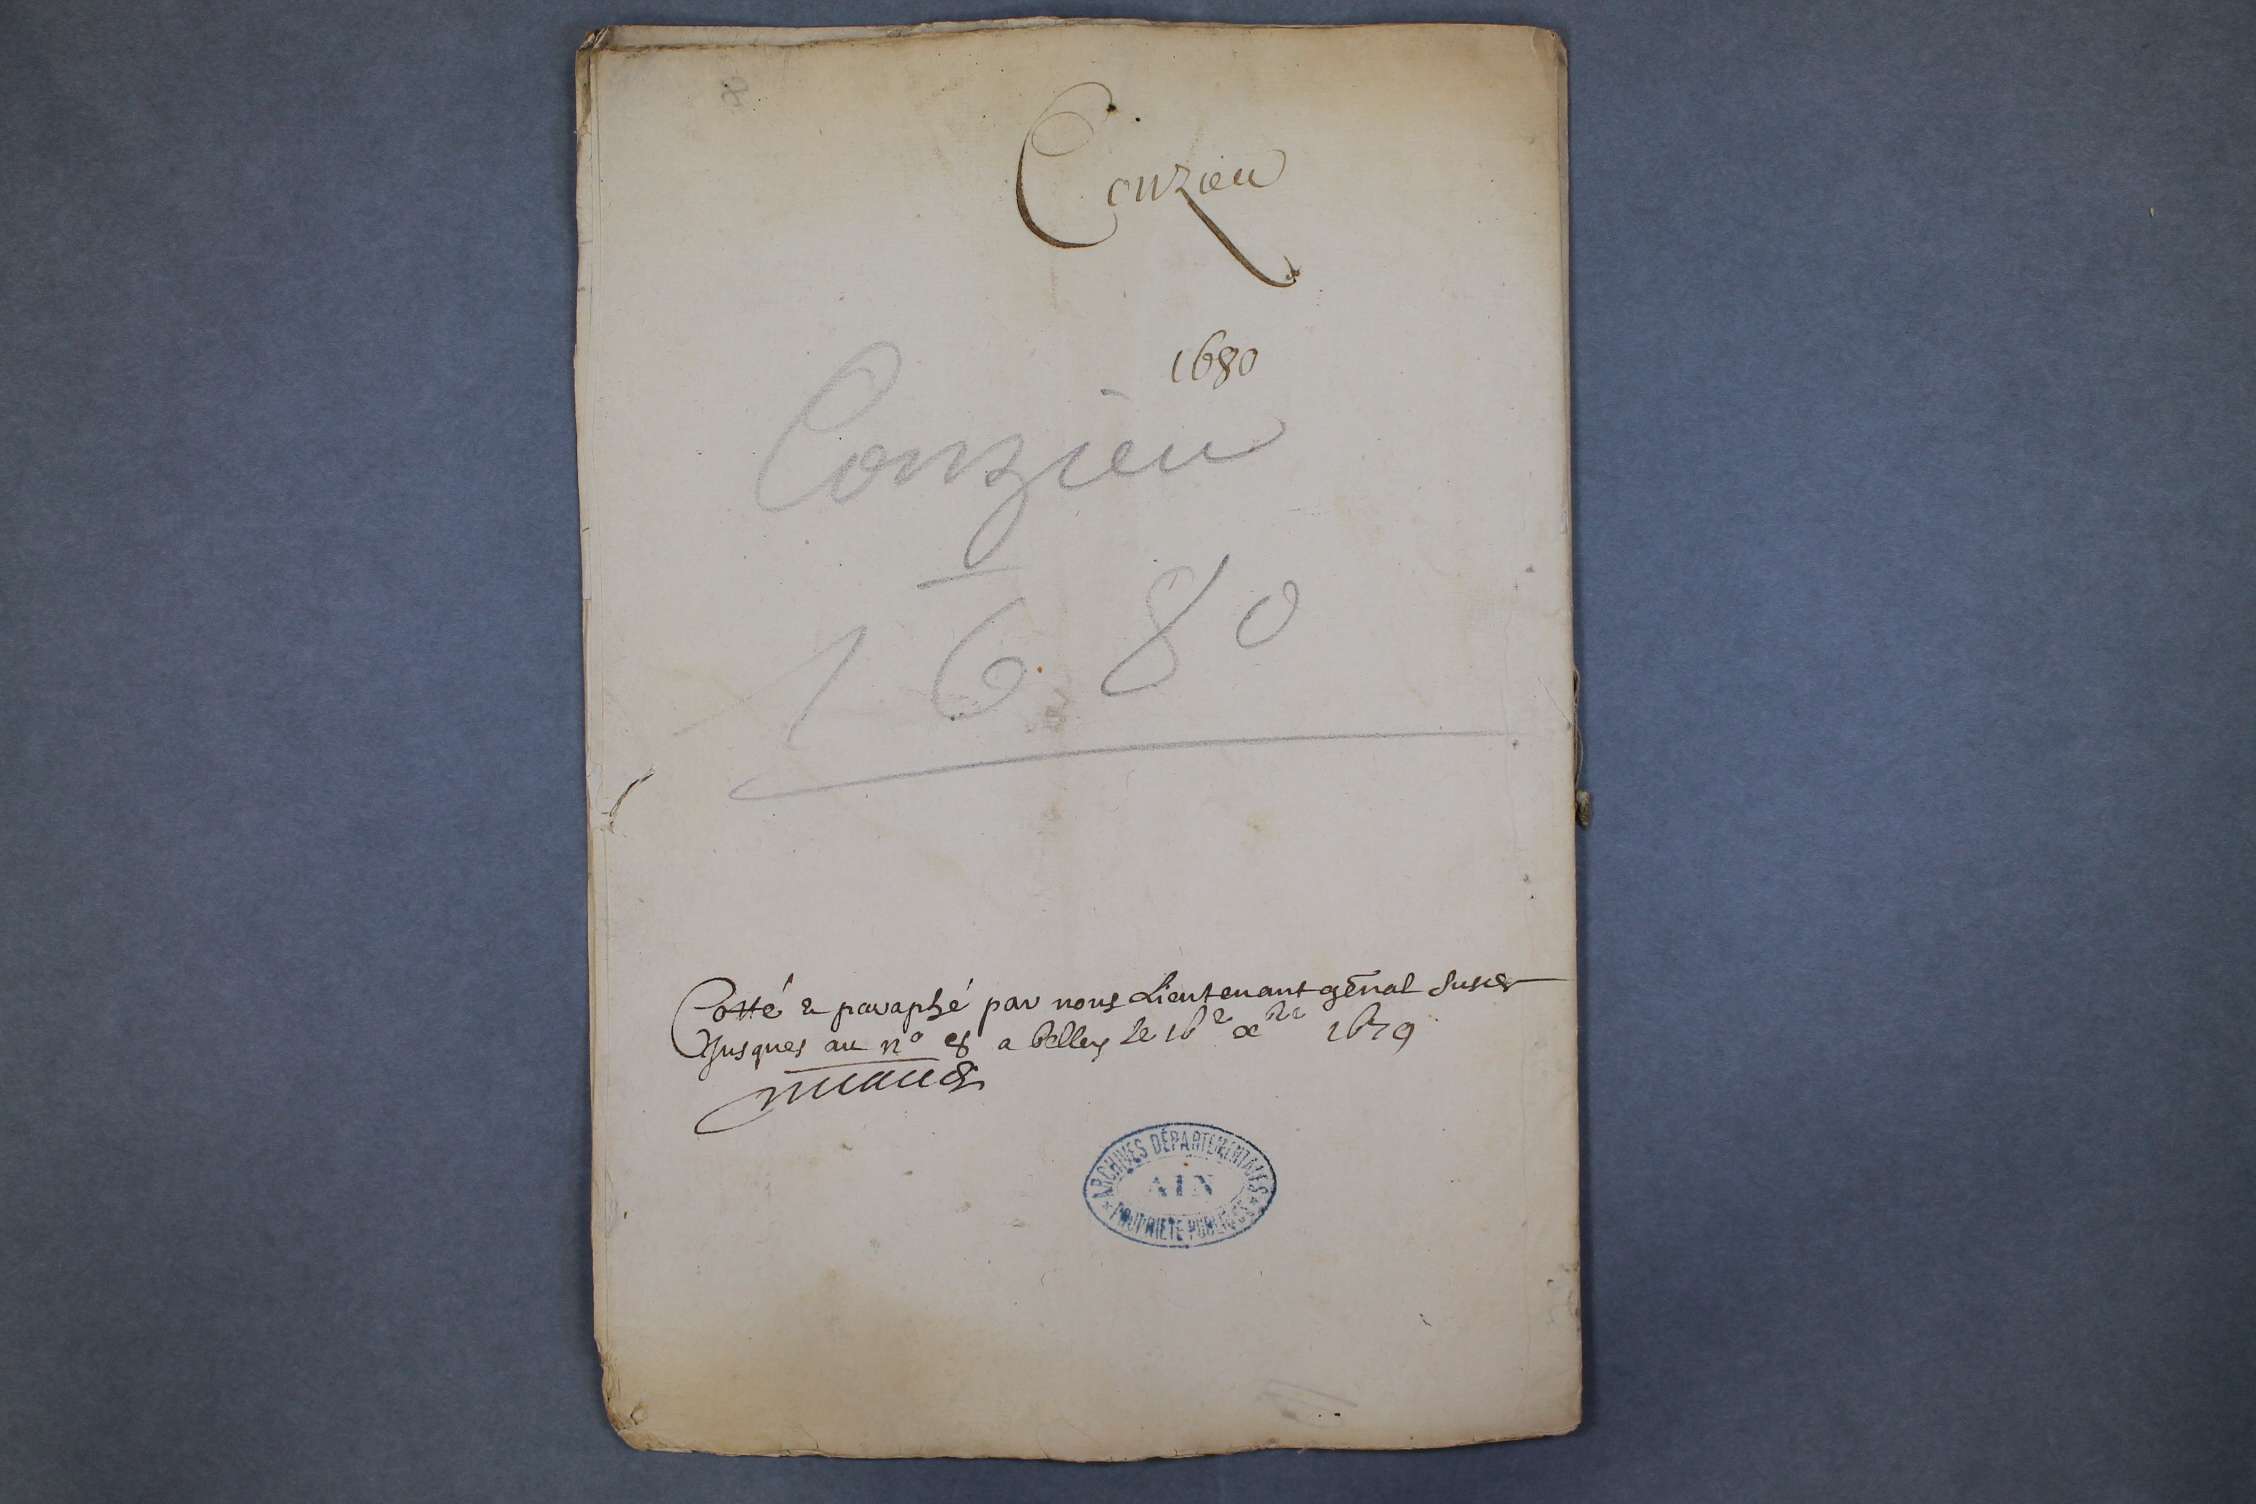 8
Conzieu
1680
Conzieu
1680
Cotté & paraphé par nous Lieutenant gēnal susd
Jusques au n° 8 a belley le 16e xbre 1679
ARCHIVES DÉPARTEMENTALES
AIN
PROPRIÉTÉ PUBLIQUE